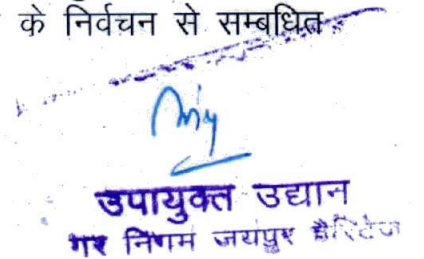 के निर्वचन से सम्बधित
उपायुक्त उद्यान
नगर निगम जयपुर हैरिटेज